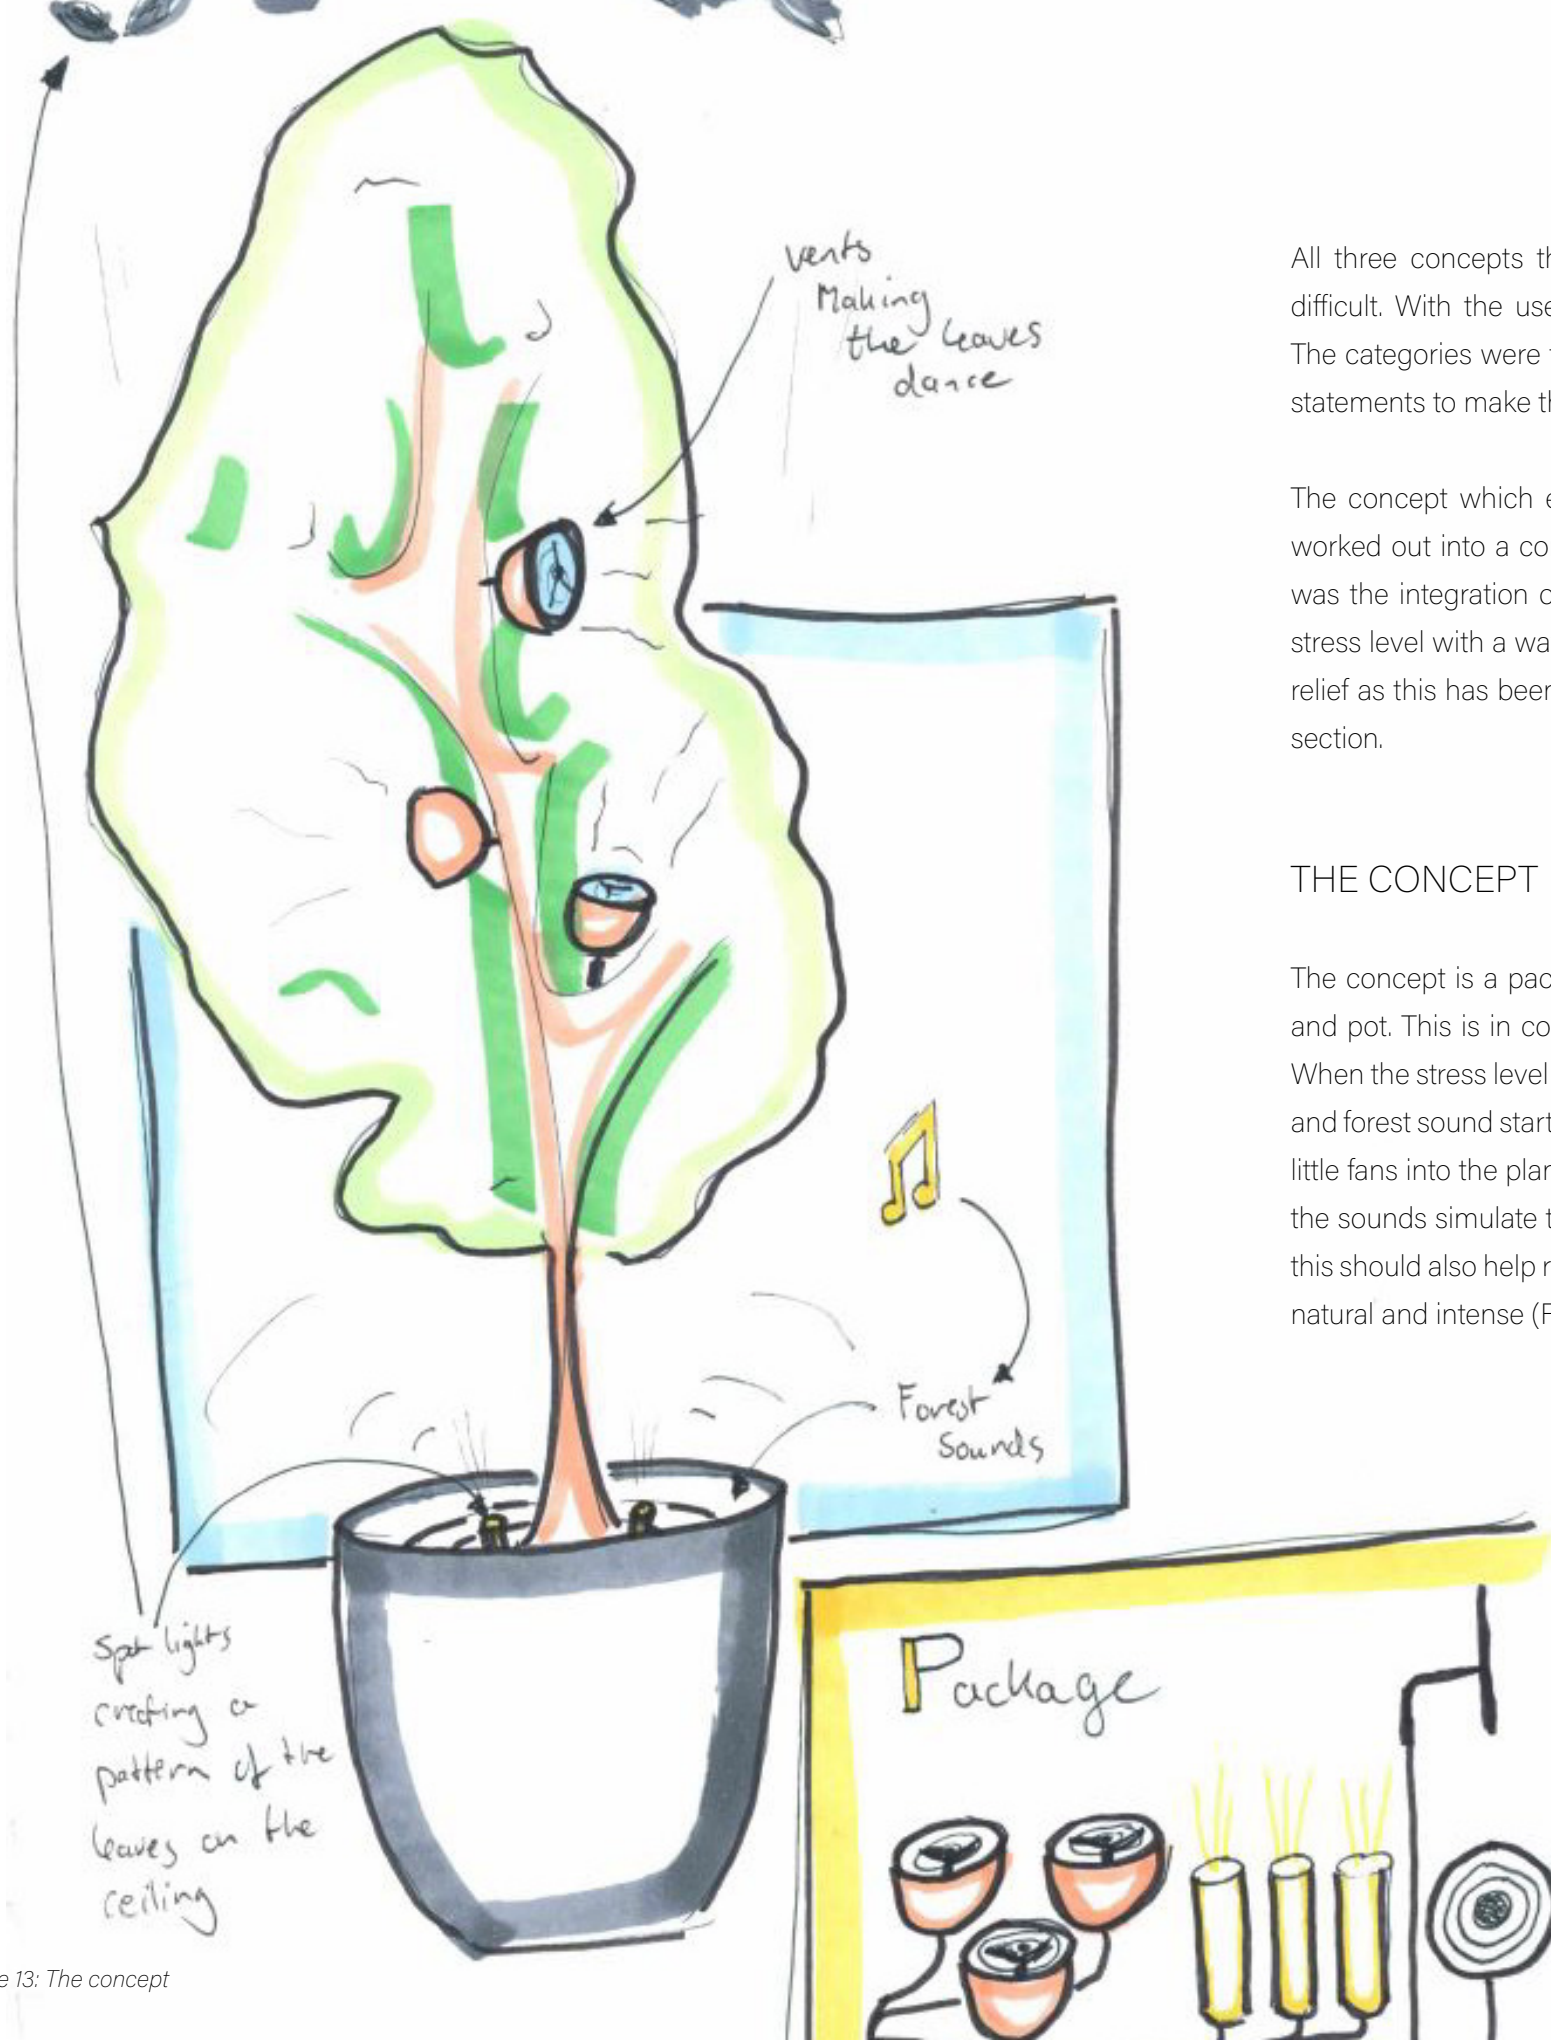 vents
Making
the leaves
dance
Forest
Sounds
Spot lights
creating a
pattern of the
leaves on the
ceiling
Package
e 13: The concept
All three concepts th
difficult. With the use
The categories were t
statements to make th
The concept which e
worked out into a co
was the integration o
stress level with a wa
relief as this has been
section.
THE CONCEPT
The concept is a pac
and pot. This is in co
When the stress level
and forest sound start
little fans into the plan
the sounds simulate t
this should also help r
natural and intense (F